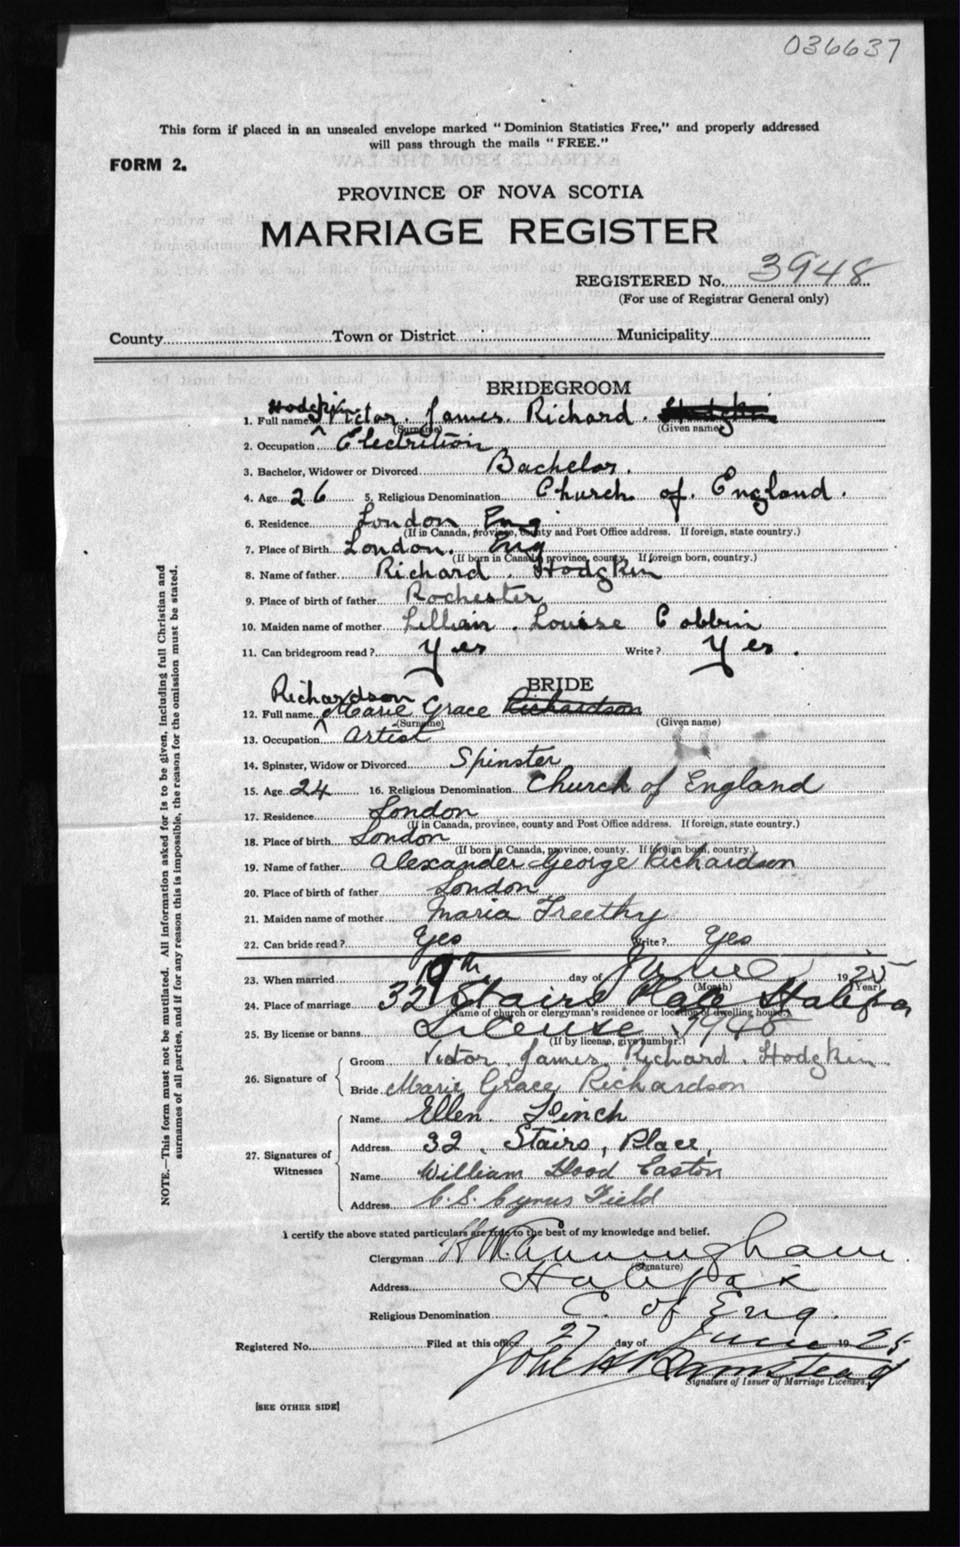 036637
This form if placed in an unsealed envelope marked "Dominion Statistics Free," and properly addressed
will pass through the mails "FREE."
FORM 2.
PROVINCE OF NOVA SCOTIA
MARRIAGE REGISTER
REGISTERED No. 3948
(For use of Registrar General only)
County Town or District Municipality
BRIDEGROOM
Hodgkin
1. Full name Victor James Richard Hodgkin
(Surname) (Given name)
2. Occupation Electrition
3. Bachelor, Widower or Divorced Bachelor.
4. Age 26 5. Religious Denomination Church of England.
6. Residence London Eng
(If in Canada, province, county and Post Office address. If foreign, state country.)
7. Place of Birth London. Eng
(If born in Canada, province, county. If foreign born, country.)
8. Name of father Richard. Hodgkin
9. Place of birth of father Rochester
10. Maiden name of mother Lillian. Louise Cobbin
11. Can bridegroom read? Yes Write? Yes.
BRIDE
Richardson
12. Full name Marie Grace Richardson
(Surname) (Given name)
13. Occupation Artist
14. Spinster, Widow or Divorced Spinster
15. Age 24 16. Religious Denomination Church of England
17. Residence London
(If in Canada, province, county and Post Office address. If foreign, state country.)
18. Place of birth London
(If born in Canada, province, county. If foreign born, country.)
19. Name of father Alexander George Richardson
20. Place of birth of father London
21. Maiden name of mother Maria Freethy
22. Can bride read? Yes Write? Yes
23. When married 19th day of June 1925
(Month) (Year)
24. Place of marriage 32 Stairs Place Halifax
(Name of church or clergyman's residence or location of dwelling house)
25. By license or banns License 3948
(If by license, give number.)
26. Signature of
Groom Victor James Richard. Hodgkin
Bride Marie Grace Richardson
27. Signatures of Witnesses
Name Ellen
Address 32, Stairs, Place
Name William Hood Easton
Address C.S. Cyrus Field
I certify the above stated particulars are true to the best of my knowledge and belief.
Clergyman Cunningham
(Signature)
Address Halifax
Religious Denomination C. of Eng.
Registered No. Filed at this office 27 day of June 1925
John H Barnstead
Signature of Issuer of Marriage Licenses.
[SEE OTHER SIDE]
NOTE.—This form must not be mutilated. All information asked for is to be given, including full Christian and
surnames of all parties, and if for any reason this is impossible, the reason for the omission must be stated.